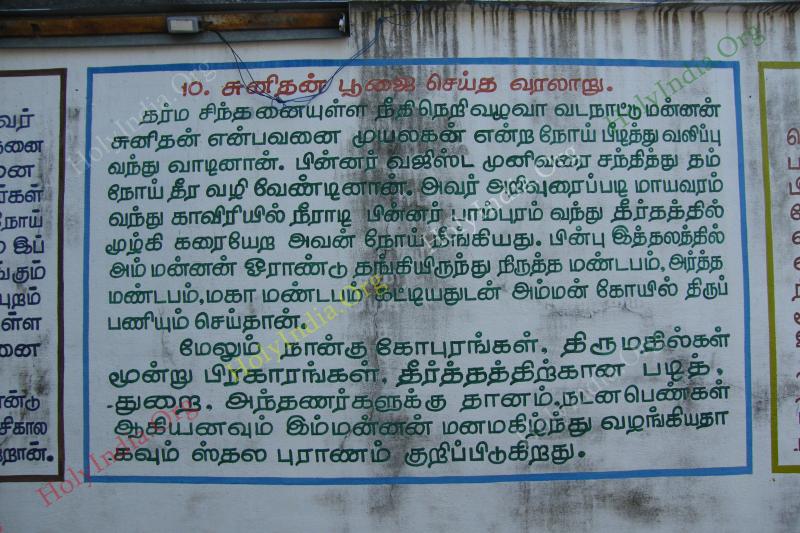 10. சுனிதன் பூஜை செய்த வரலாறு.
தர்ம சிந்தனையுள்ள நீதிநெறிவழவா வடநாட்டுமன்னன்
சுனிதன் என்பவனை முயலகன் என்ற நோய் பீடித்து வலிப்பு
வந்து வாடினான். பின்னர் வஜிஸ்ட முனிவரை சந்தித்து தம்
நோய் தீர வழி வேண்டினான். அவர் அறிவுரைப்படி மாயவரம்
வந்து காவிரியில் நீராடி பின்னர் பாம்புரம் வந்து தீர்தகத்தில்
மூழ்கி கரையேற அவன் நோய் நீங்கியது. பின்பு இத்தலத்தில்
அம் மன்னன் ஓராண்டு தங்கியிருந்து நிருத்த மண்டபம், அர்த்த
மண்டபம்,மகா மண்டபம் கட்டியதுடன் அம்மன் கோயில் திருப்
பணியும் செய்தான்.
மேலும் நான்கு கோபுரங்கள், திருமதில்கள்
மூன்று பிரகாரங்கள், தீர்த்தத்திற்கான படித்,
-துறை, அந்தணர்களுக்கு தானம்,நடனபெண்கள்
ஆகியனவும் இம்மன்னன் மனமகிழ்ந்து வழங்கியதா
கவும் ஸ்தல புராணம் குறிப்பிடுகிறது.
வர்
தனை
மன
நகள்
நோய்
ம் இப்
ங்கும்
புறம்
ள்ள
னை
ாண்டு
சிகால
றான்.
HolyIndia.Org
HolyIndia.Org
HolyIndia.Org
HolyIndia.Org
HolyIndia.Org